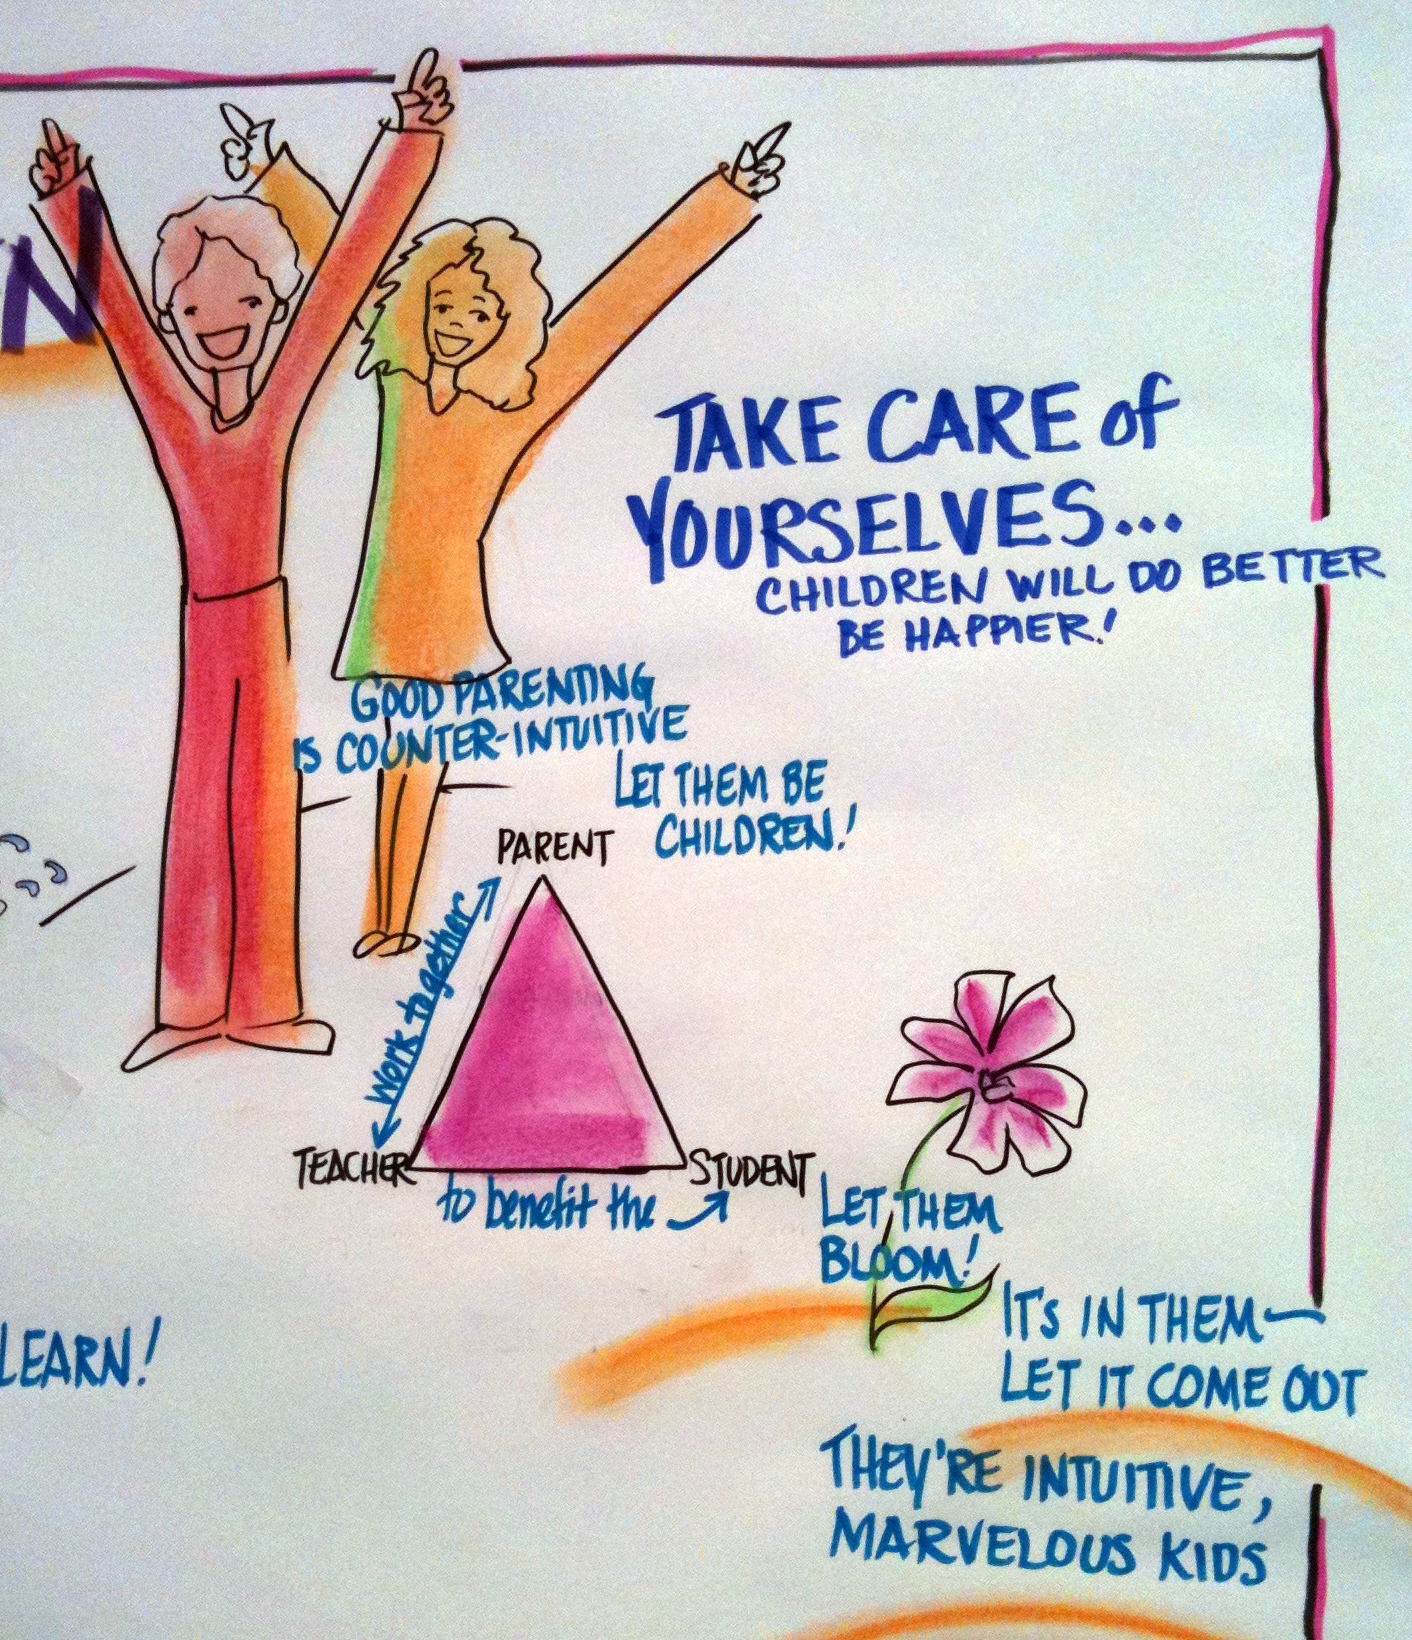 N
TAKE CARE of
YOURSELVES...
CHILDREN WILL DO BETTER
BE HAPPIER!
GOOD PARENTING
IS COUNTER-INTUITIVE
LET THEM BE
CHILDREN!
PARENT
Work together
TEACHER
STUDENT
to benefit the
LET THEM
BLOOM!
IT'S IN THEM—
LET IT COME OUT
LEARN!
THEY'RE INTUITIVE,
MARVELOUS KIDS